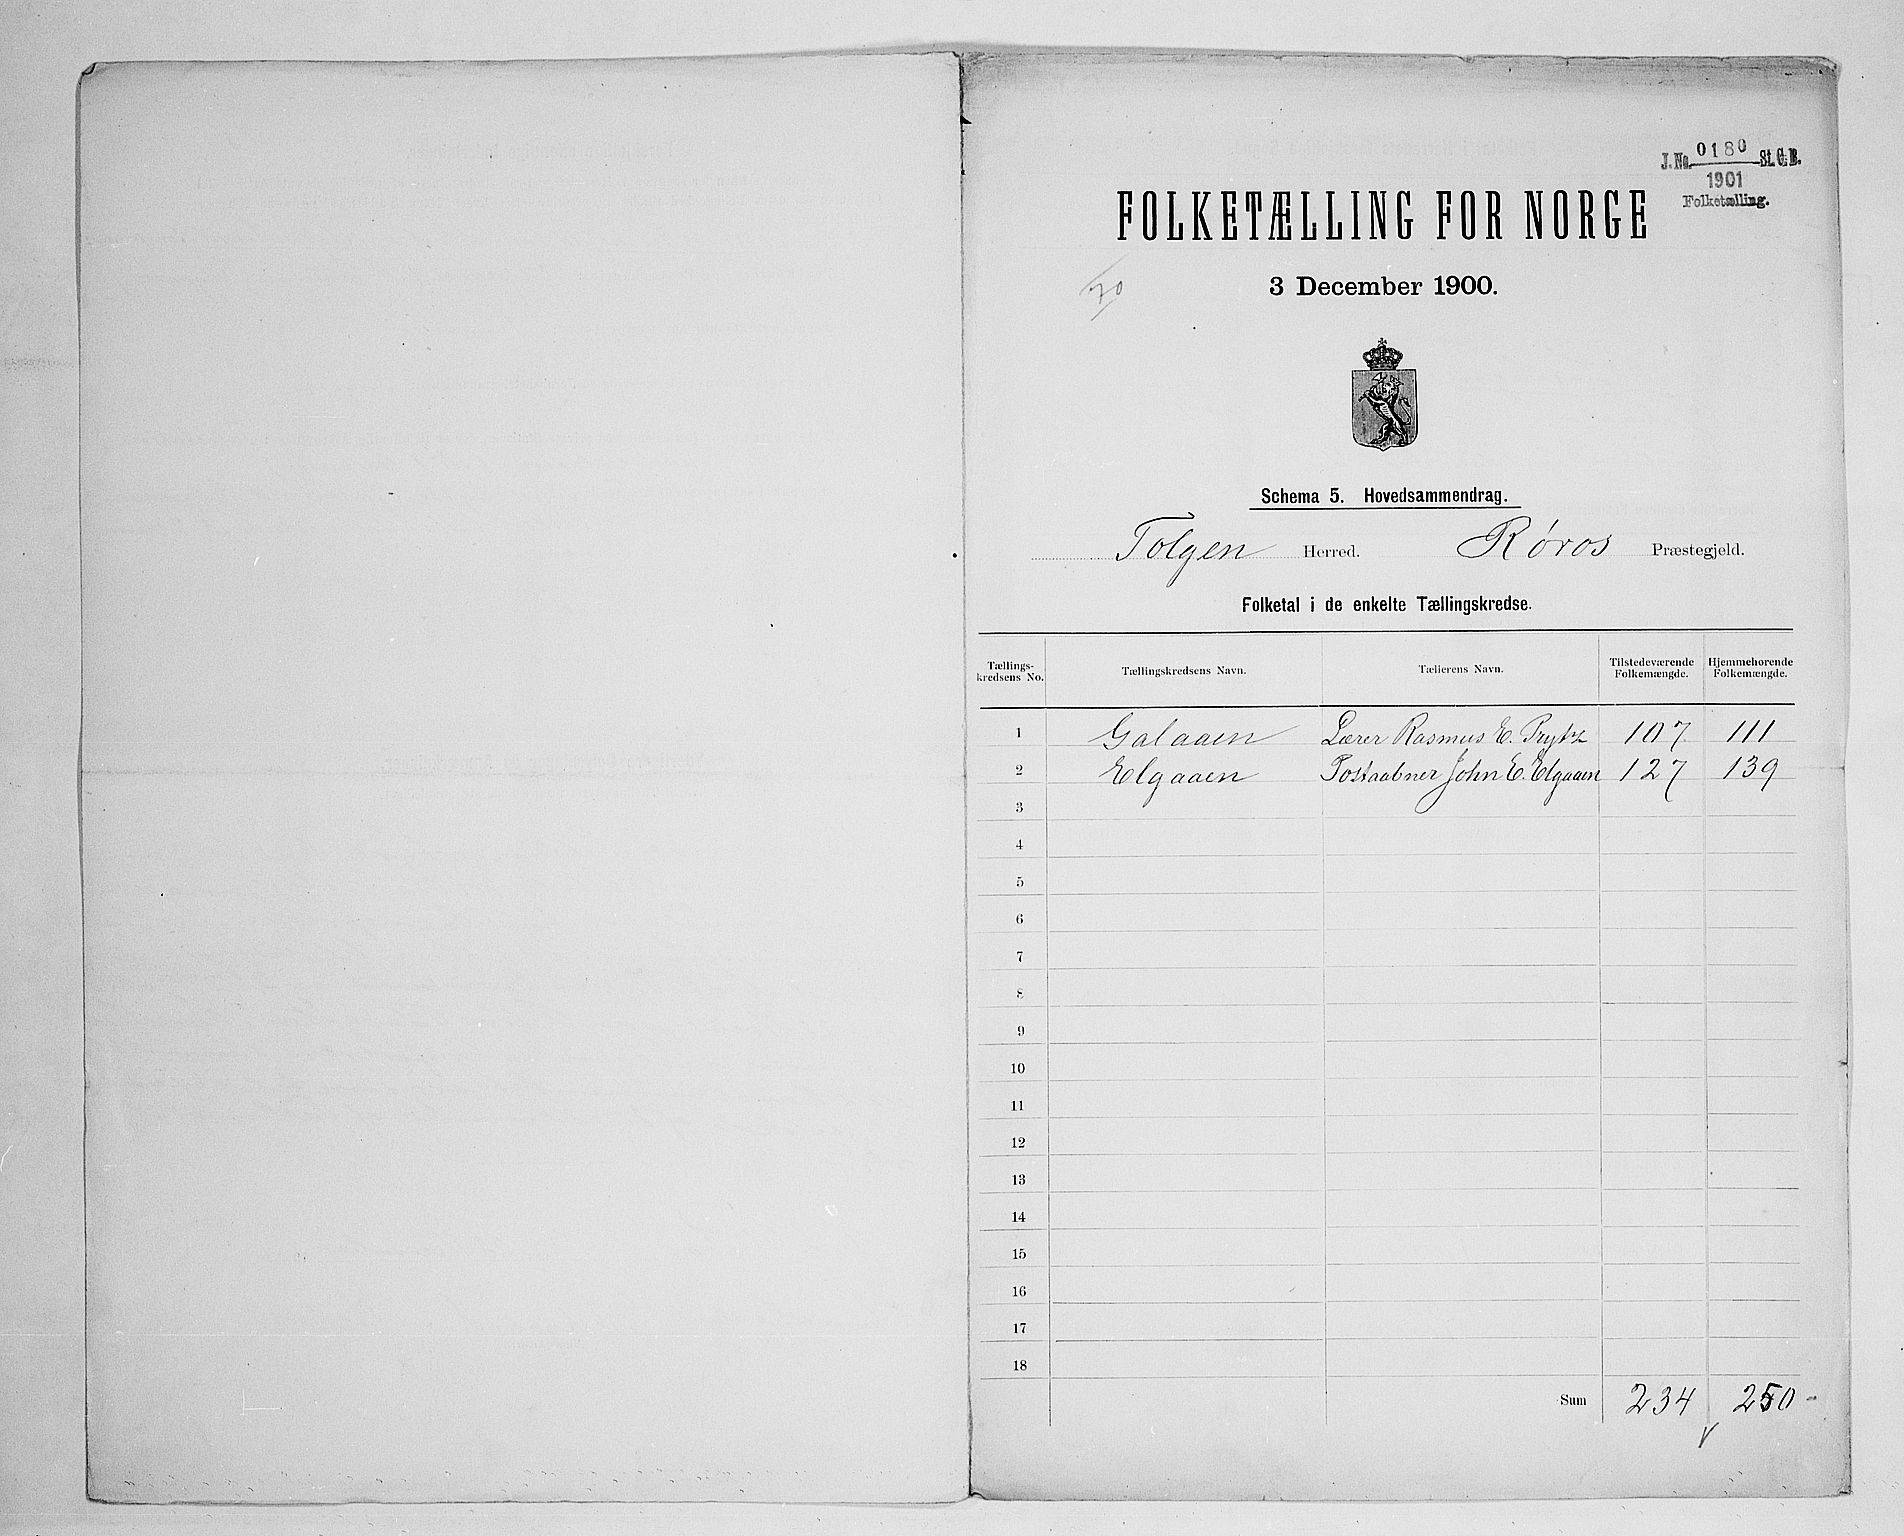 J.No. 0180 St. C.B.
1901
Folketælling.
FOLKETÆLLING FOR NORGE
70
3 December 1900.
Schema 5. Hovedsammendrag.
Tolgen Herred. Røros Præstegjeld.
Folketal i de enkelte Tællingskredse.
Tællings-kredsens No. Tællingskredsens Navn. Tællerens Navn. Tilstedeværende Folkemængde. Hjemmehørende Folkemængde.
1 Galaaen Lærer Rasmus E. Prytz 107 111
2 Elgaaen Postaabner John E. Elgaaen 127 139
3
4
5
6
7
8
9
10
11
12
13
14
15
16
17
18
Sum 234 250